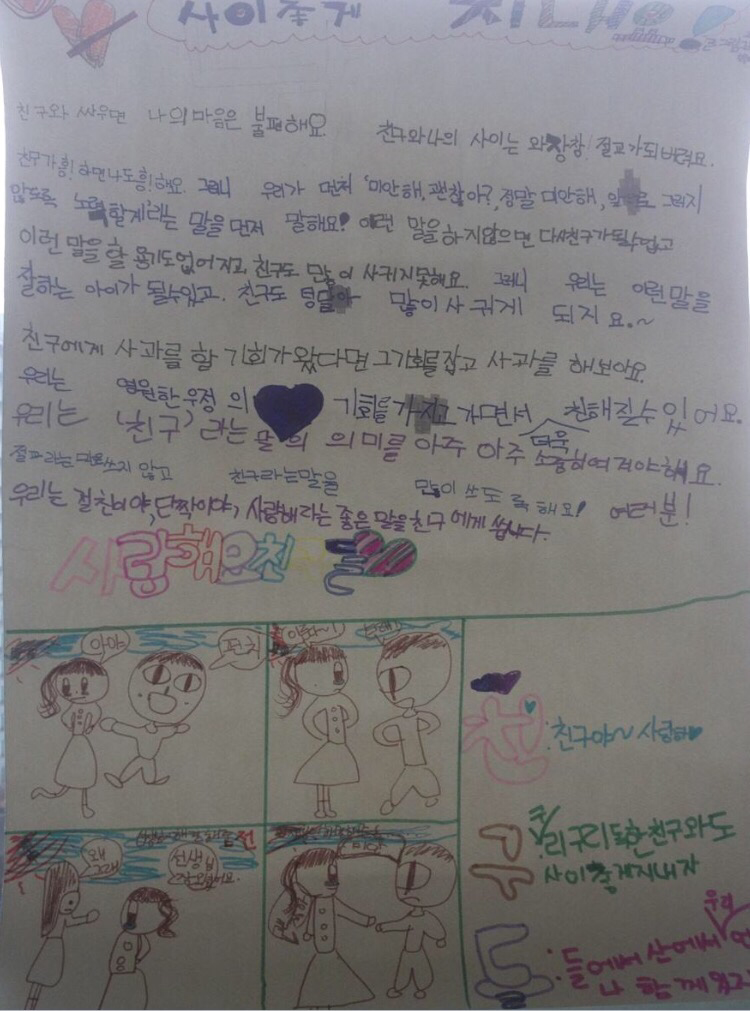 사이좋게 지내요
친구와 싸우면 나의마음은 불편해요
친구와나의 사이는 와장창! 절교가되버려요.
친구가흥! 하면나도흥!해요. 그러니 우리가 먼저 '미안해, 괜찮아?, 정말 미안해, 그러지
않도록 노력할게'라는 말을먼저 말해요! 이런 말을하지않으면 다시친구가될수없고
이런 말을할 용기도없어지고, 친구도 많이 사귀지못해요. 그러니 우리는 이런말을
잘하는 아이가 될수있고. 친구도 많이사귀게 되지요.~
친구에게 사과를 할 기회가왔다면 그기회를잡고 사과를 해보아요.
우리는 영원한우정의 기회를 가지고가면서 친해질수있어요.
우리는 '친구'라는 말의 의미를 아주 아주 더욱 소중히여겨야해요.
절교라는 말을쓰지 않고 친구라는말을 많이 쓰도록해요! 여러분!
우리는 절친이야, 단짝이야, 사랑해라는 좋은말을친구에게 씁니다.
사랑해요친구들
아야
펀치
왜그래
선생님
친:친구야~ 사랑해
구:구리구리한친구와도
사이좋게지내자
들:들에서산에서 우리
나 함께